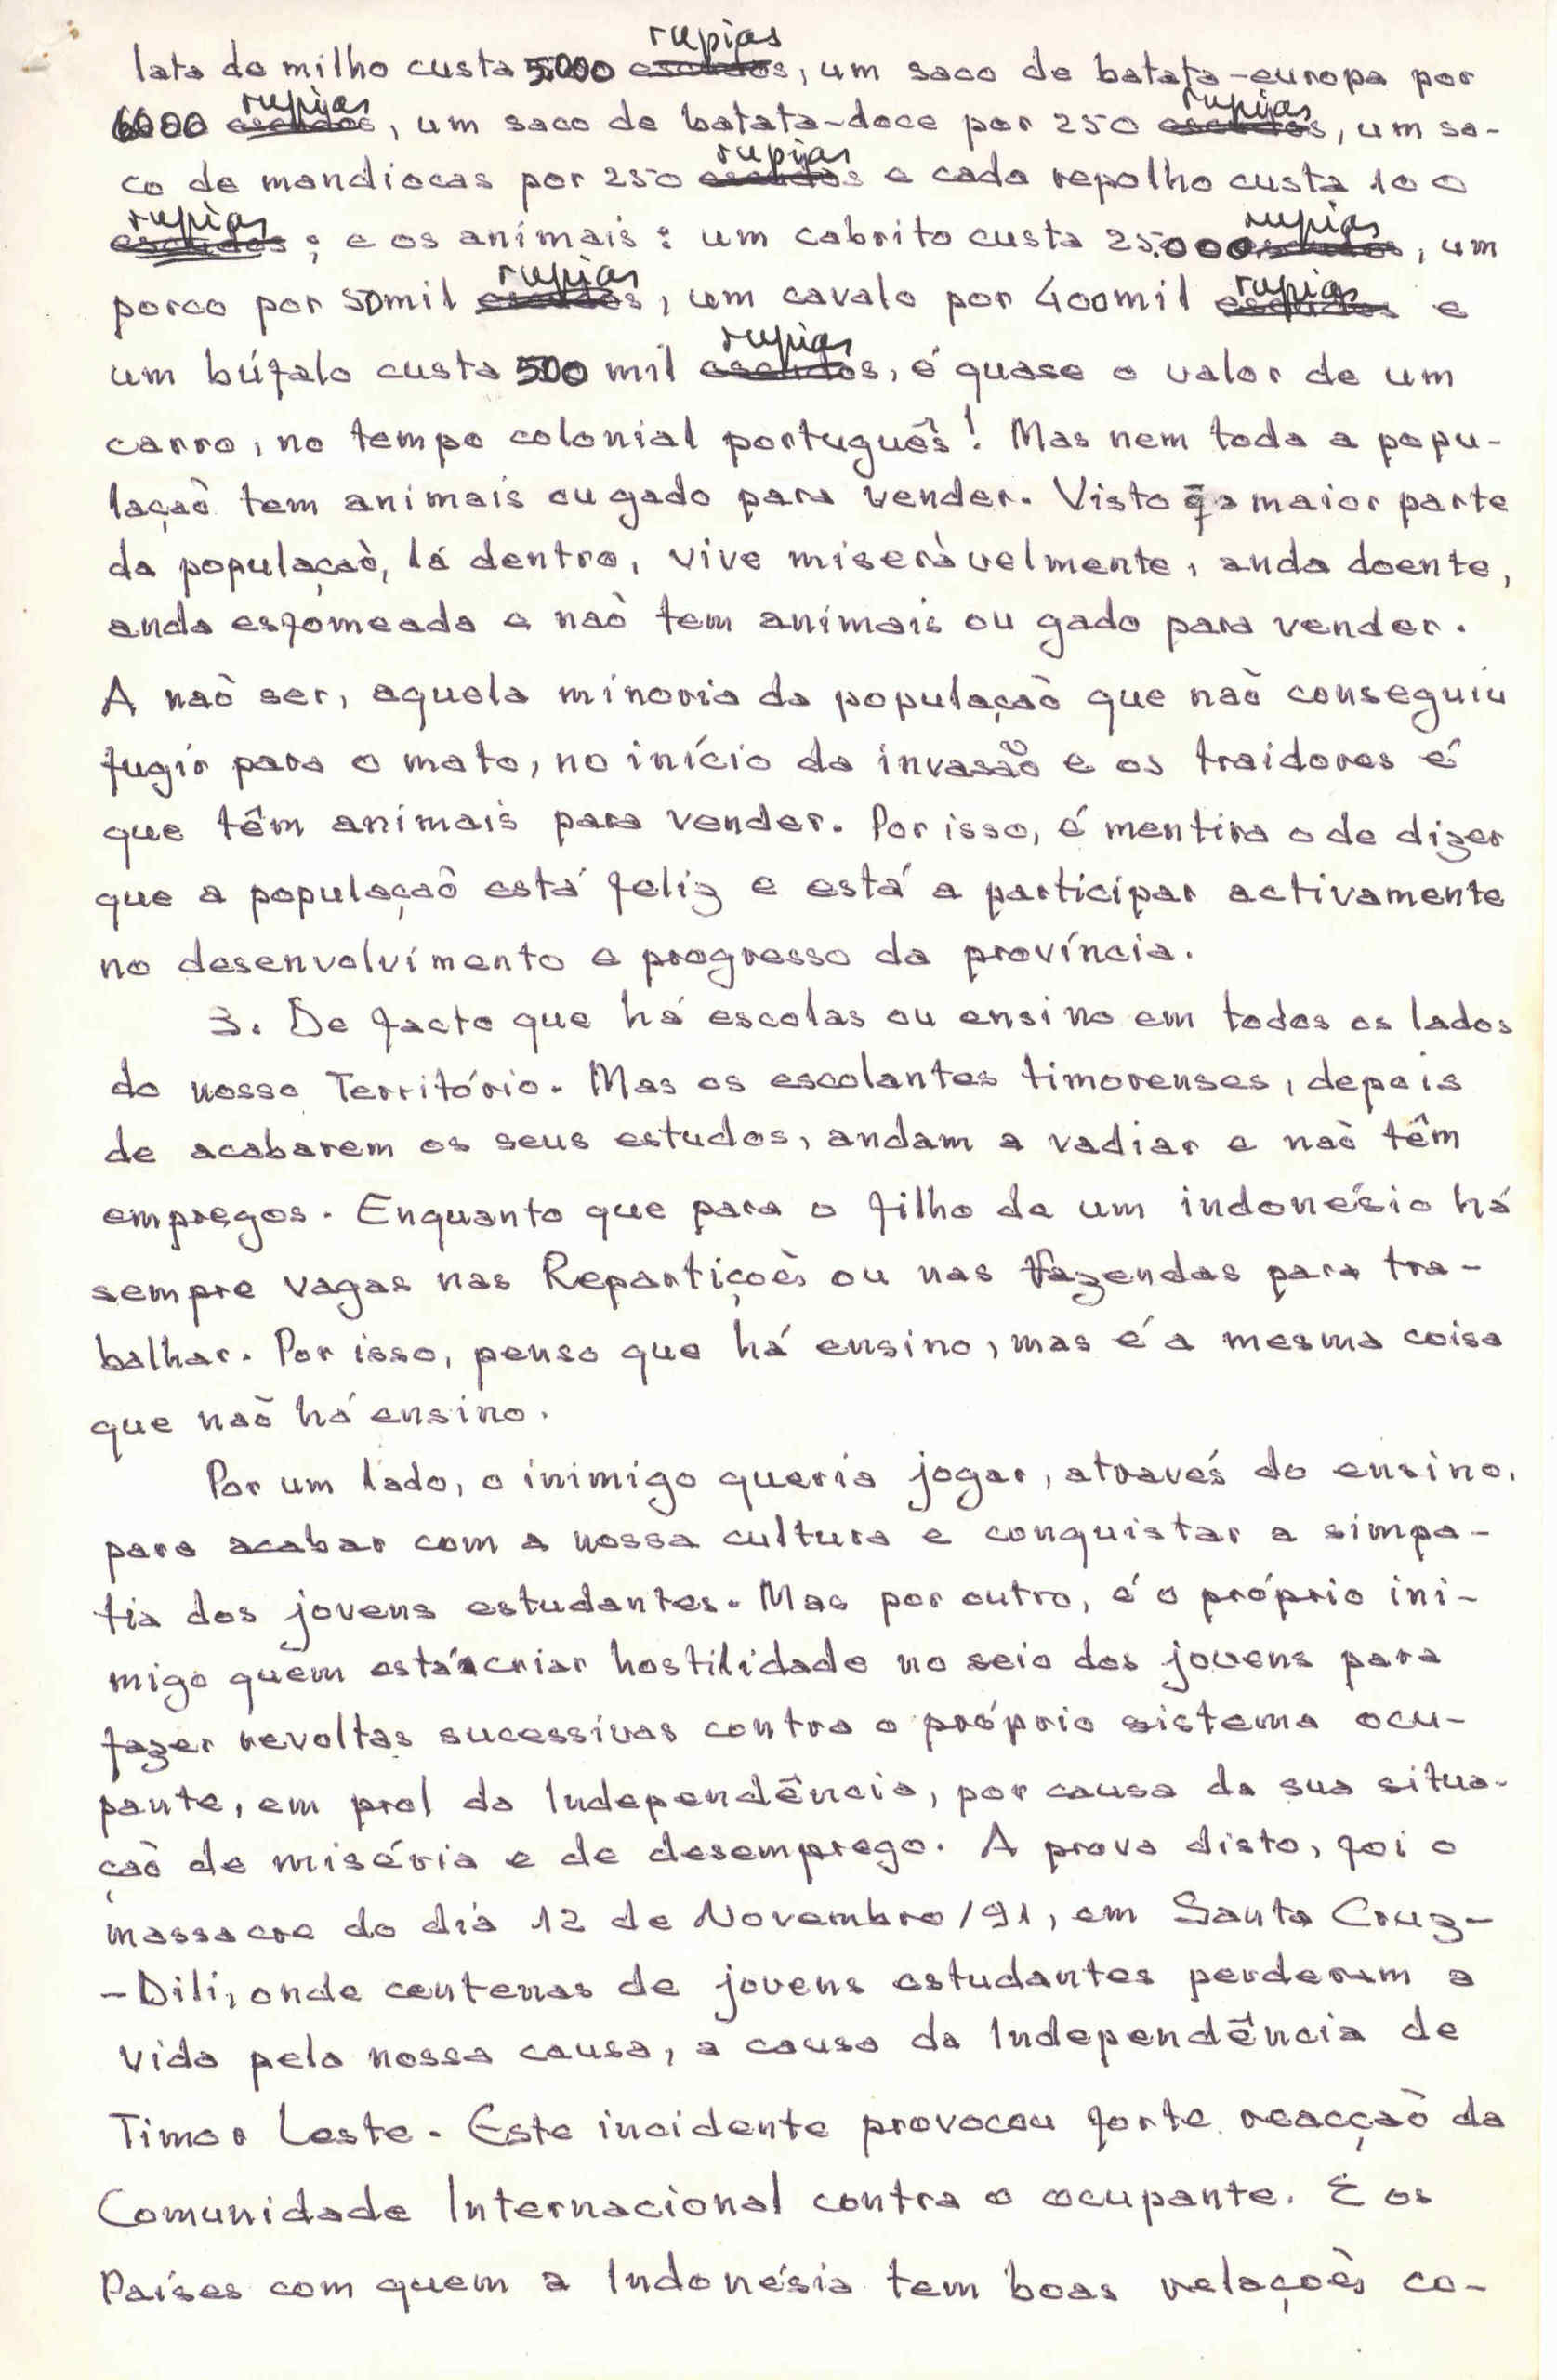 lata de milho custa 5.000 escudos rupias, um saco de batata-europa por
6000 escudos rupias, um saco de batata-doce por 250 escudos rupias, um sa-
co de mandiocas por 250 escudos rupias e cada repolho custa 100
escudos rupias; e os animais: um cabrito custa 25.000 escudos rupias, um
porco por 50mil escudos rupias, um cavalo por 400mil escudos rupias e
um búfalo custa 500 mil escudos rupias, é quase o valor de um
carro, no tempo colonial português! Mas nem toda a popu-
laçaò tem animais ou gado para vender. Visto q̄ a maior parte
da populaçaò, lá dentro, vive miseràvelmente, anda doente,
anda esfomeada e naò tem animais ou gado para vender.
A naò ser, aquela minoria da populaçaò que naò conseguiu
fugir para o mato, no início da invasão e os traidores é
que têm animais para vender. Por isso, é mentira o de dizer
que a populaçaò está feliz e está a participar activamente
no desenvolvimento e progresso da província.
3. De facto que há escolas ou ensino em todos os lados
do nosso Território. Mas os escolantes timorenses, depois
de acabarem os seus estudos, andam a vadiar e naò têm
empregos. Enquanto que para o filho de um indonésio há
sempre vagas nas Repartiçoès ou nas Fazendas para tra-
balhar. Por isso, penso que há ensino, mas é a mesma coisa
que naò há ensino.
Por um lado, o inimigo queria jogar, através do ensino,
para acabar com a nossa cultura e conquistar a simpa-
tia dos jovens estudantes. Mas por outro, é o próprio ini-
migo quem está a criar hostilidade no seio dos jovens para
fazer revoltas sucessivas contra o próprio sistema ocu-
pante, em prol da Independência, por causa da sua situa-
çaò de miséria e de desemprego. A prova disto, foi o
massacre do dia 12 de Novembro/91, em Santa Cruz-
-Dili, onde centenas de jovens estudantes perderam a
vida pela nossa causa, a causa da Independência de
Timor Leste. Este incidente provocou forte reacçaò da
Comunidade Internacional contra o ocupante. E os
Países com quem a Indonésia tem boas relaçoès co-